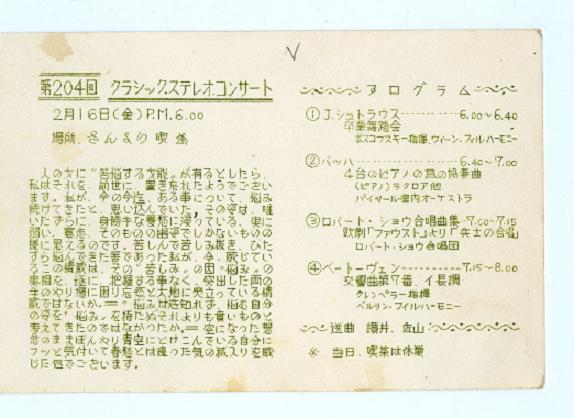 第204回 クラシック.ステレオ.コンサート
2月16日(金)P.M.6.00
場所. さんまり喫茶
人の女に"苦悩する才能"が有るとしたら、
私はそれを、前世に、置き忘れたようでござい
ます。私が、今の今迄、ある事について、悩み
続けてきたと、思い込んでいた、その実は、唯
いたずらに、身勝手な
思えるのです。苦しんで苦しみ抜き、ひた
すら悩んできた筈であった私が、今、感じてい
るこの
実相を、遂に、把握する事なく、突出した両の
手のやり場に困り
悩む自分
の姿を"悩み"を持たぬそれよりも貴いものと
考えてきたのではなかったか。＝空になった想
念のままぼんやり青空にとけこんでいる自分に
フッと気付いて春愁とは違った気の滅入りを感
じた他でございます。
プログラム
①J.シュトラウス 6.00~6.40
卒業舞踏会
ボスコフスキー指揮、ウィーン、フィルハーモニー
②バッハ 6.40~7.00
4台のピアノの為の協奏曲
(ピアノ)ラクロア他
パイヤール室内オーケストラ
③ロバート・ショウ合唱曲集 7.00~7.15
歌劇「ファウスト」より「兵士の合唱」
ロバート、ショウ合唱団
④ベートーヴェン 7.15~8.00
交響曲第7番、イ長調
クレンペラー指揮
ベルリン・フィルハーモニー
選曲 酒井、佐山
※ 当日、喫茶は休業